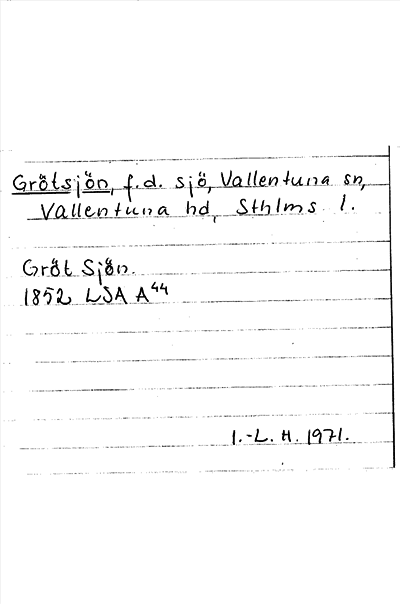 Grötsjön, f.d. sjö, Vallentuna sn,
Vallentuna hd, Sthlms l.
Gröt Sjön.
1852 LSA A44
I.-L. H. 1971.